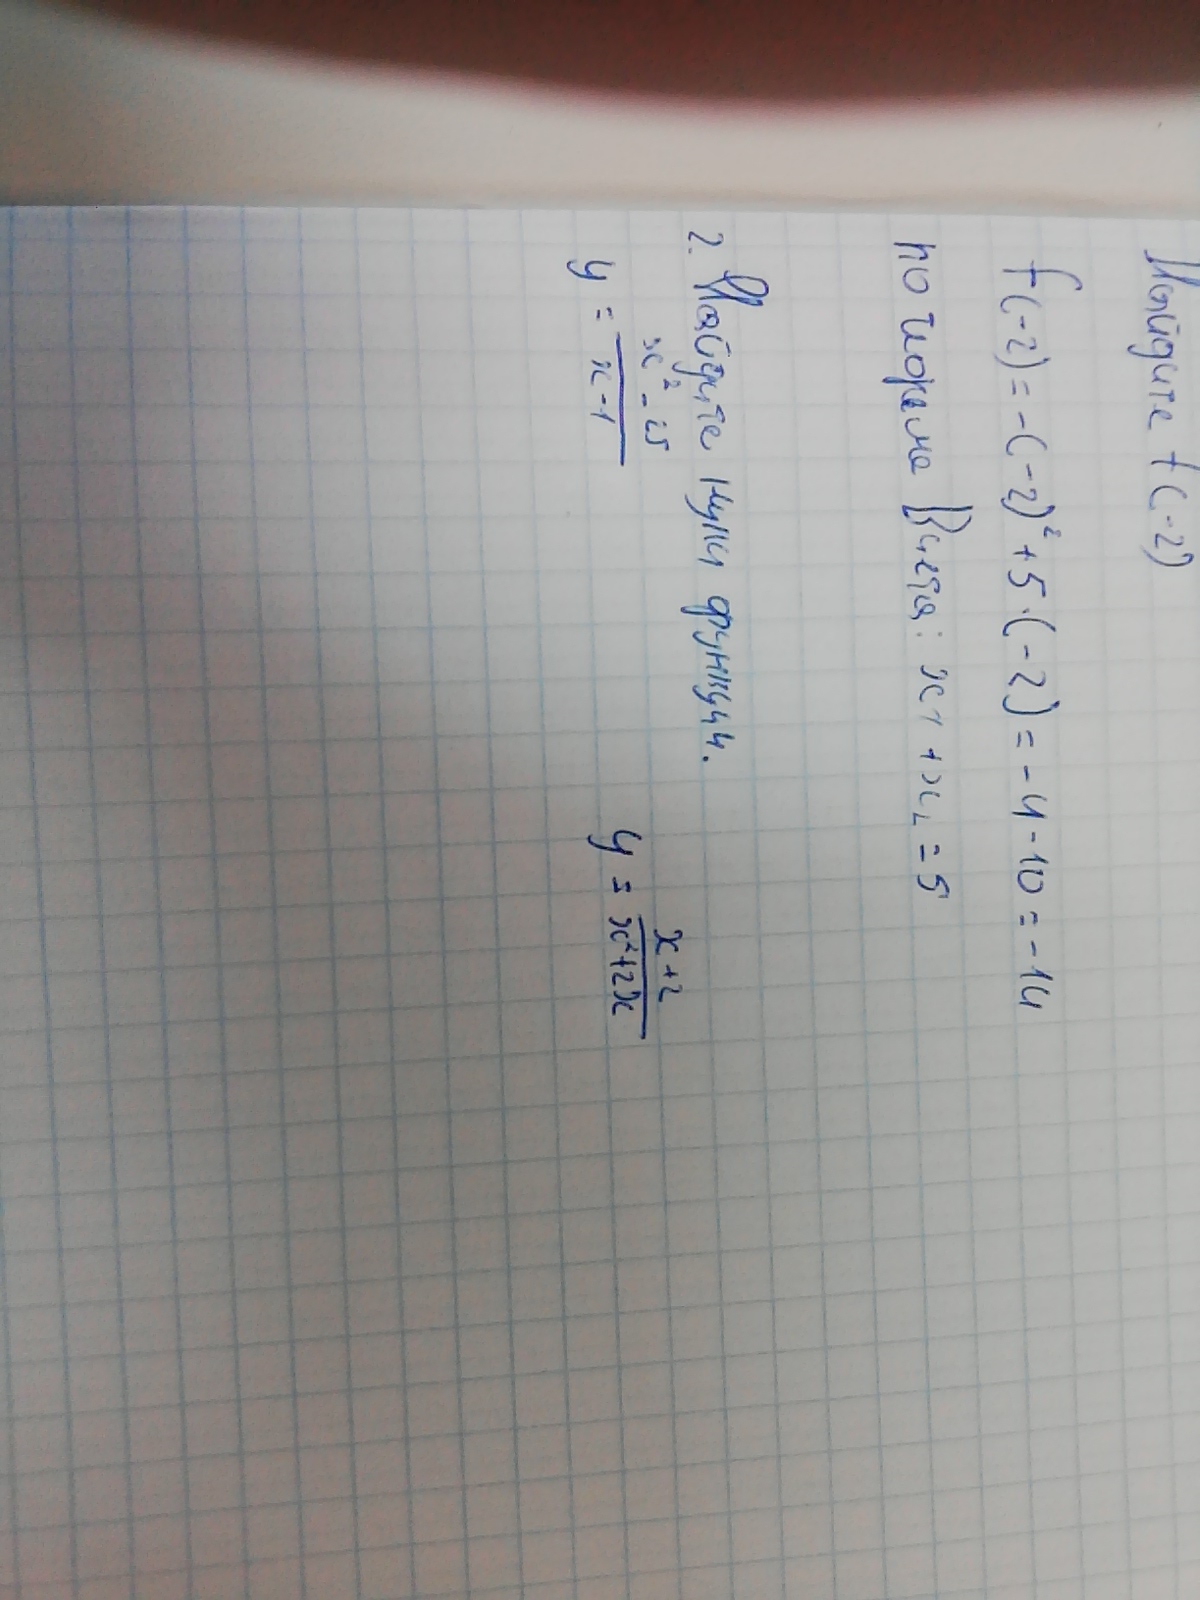 Найдите f(-2)
f(-2) = -(-2)² + 5·(-2) = -4-10 = -14
по теореме Виета: x1 + x2 = 5
2. Найдите нули функции.
y = \frac{x² - 25}{x - 1} y = \frac{x + 2}{x² + 2x}